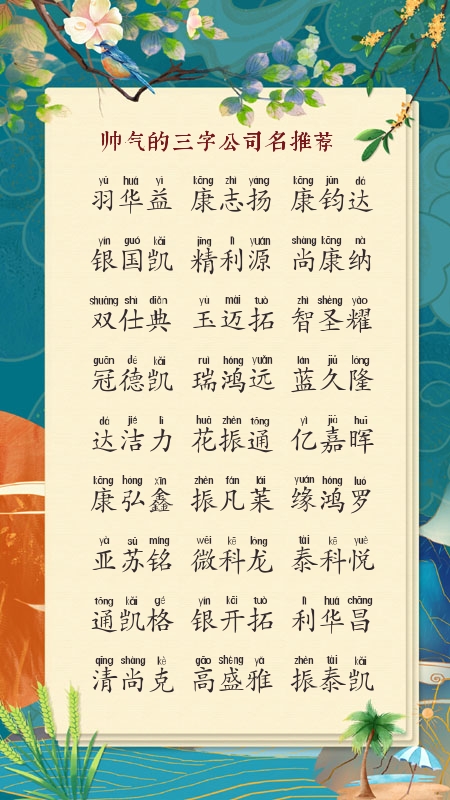 帅气的三字公司名推荐
yǔ huá yì kāng zhì yáng kāng jūn dá
羽华益 康志扬 康钧达
yín guó kǎi jīng lì yuán shàng kāng nà
银国凯 精利源 尚康纳
shuāng shì diǎn yù mài tuò zhì shèng yào
双仕典 玉迈拓 智圣耀
guān dé kǎi ruì hóng yuǎn lán jiǔ lóng
冠德凯 瑞鸿远 蓝久隆
dá jié lì huā zhèn tōng yì jiā huī
达洁力 花振通 亿嘉晖
kāng hóng xīn zhèn fán lái yuán hóng luó
康弘鑫 振凡莱 缘鸿罗
yà sū míng wēi kē lóng tài kē yuè
亚苏铭 微科龙 泰科悦
tōng kǎi gé yín kāi tuò lì huá chāng
通凯格 银开拓 利华昌
qīng shàng kè gāo shèng yǎ zhèn tài kǎi
清尚克 高盛雅 振泰凯